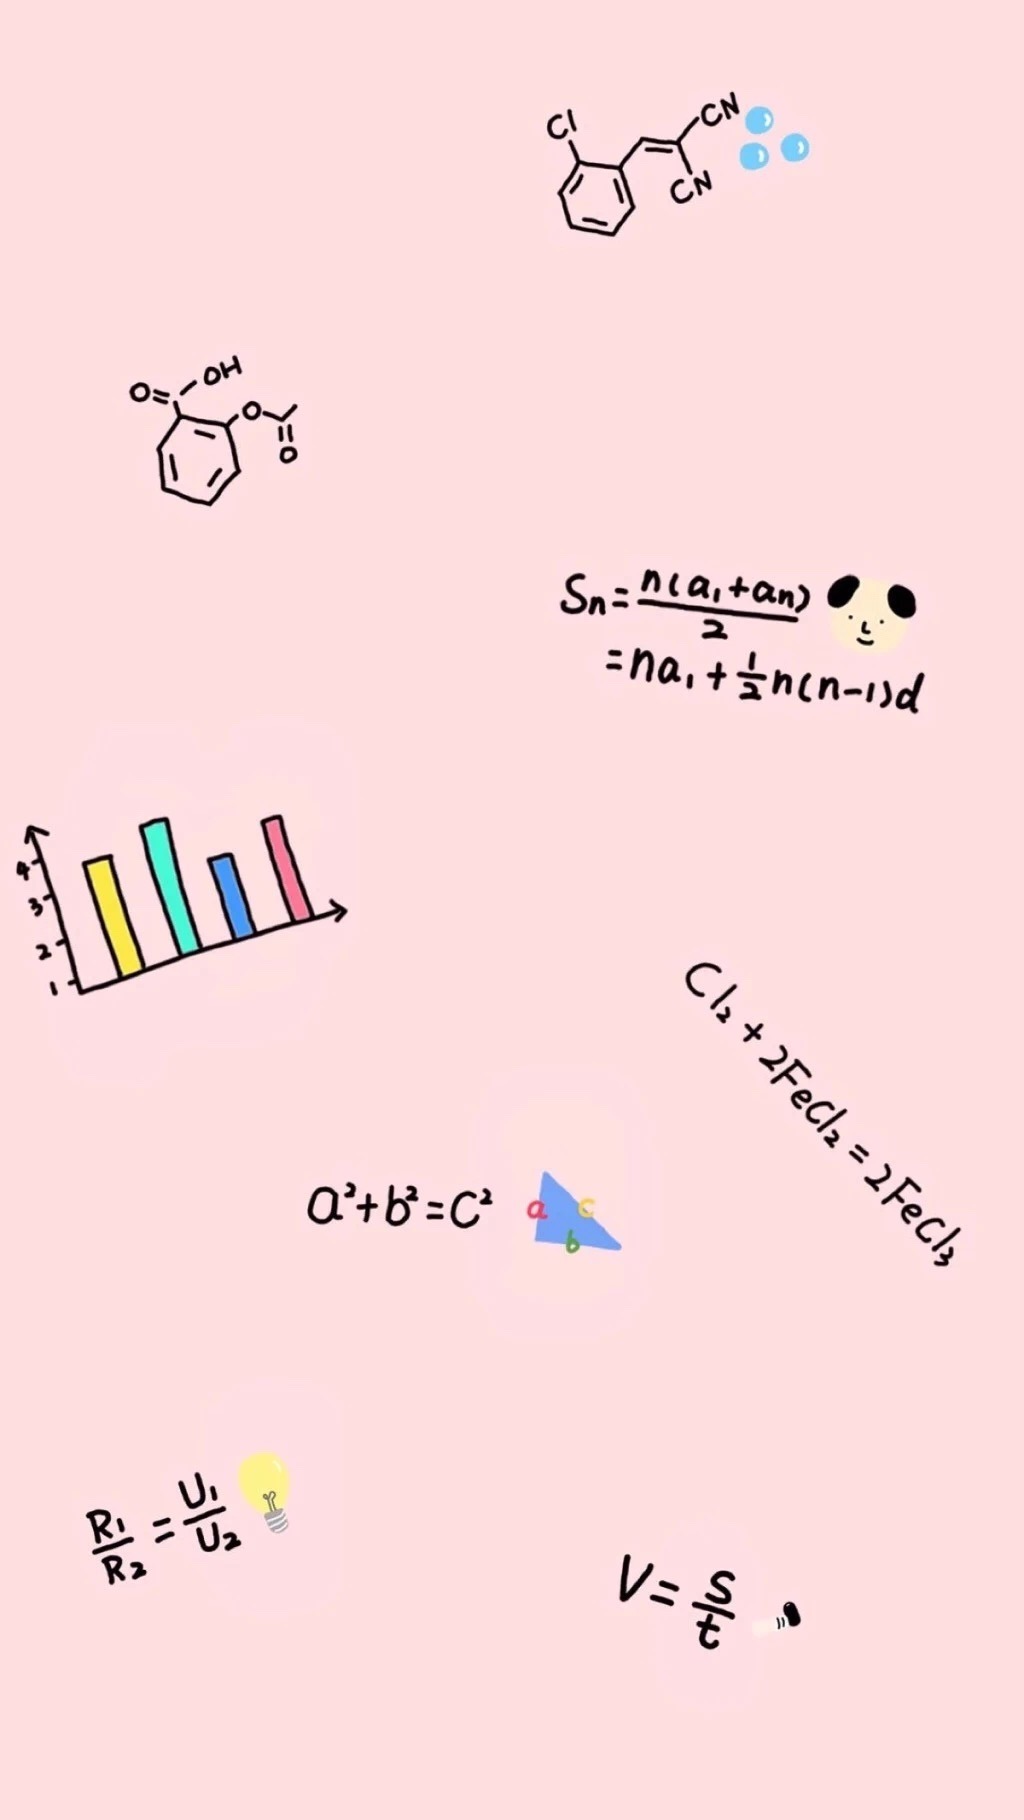 Cl
CN
CN
OH
O
O
O
Sn = n(a₁+an)/2
= na₁ + ½n(n-1)d
4
3
2
1
Cl₂ + 2FeCl₂ = 2FeCl₃
a²+b²=C²
a
c
b
R₁/R₂ = U₁/U₂
V = s/t